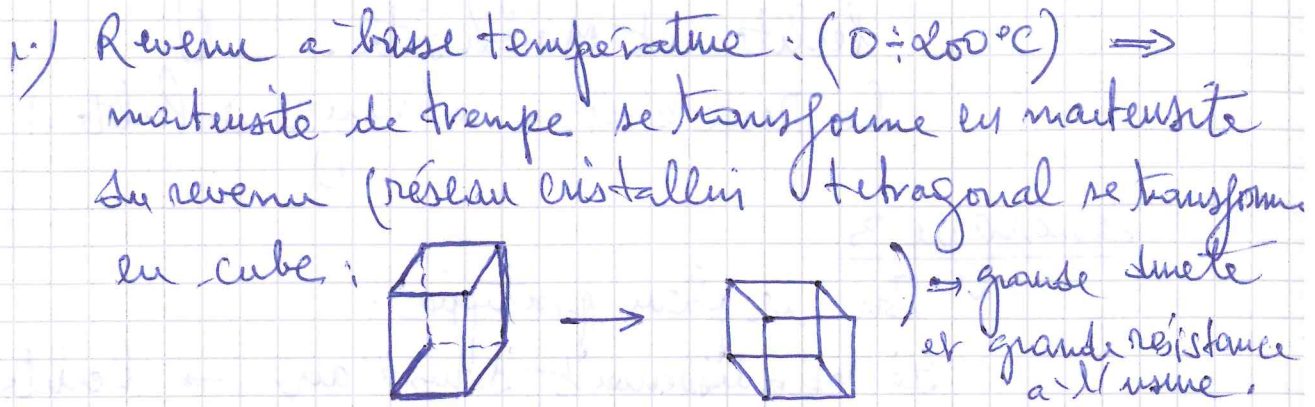 1.) Revenu à basse température : (0÷200°C) ⇒
martensite de trempe se transforme en martensite
du revenu (réseau cristallin tetragonal se transforme
en cube : → ) ⇒ grande dureté
et grande résistance
à l'usure.